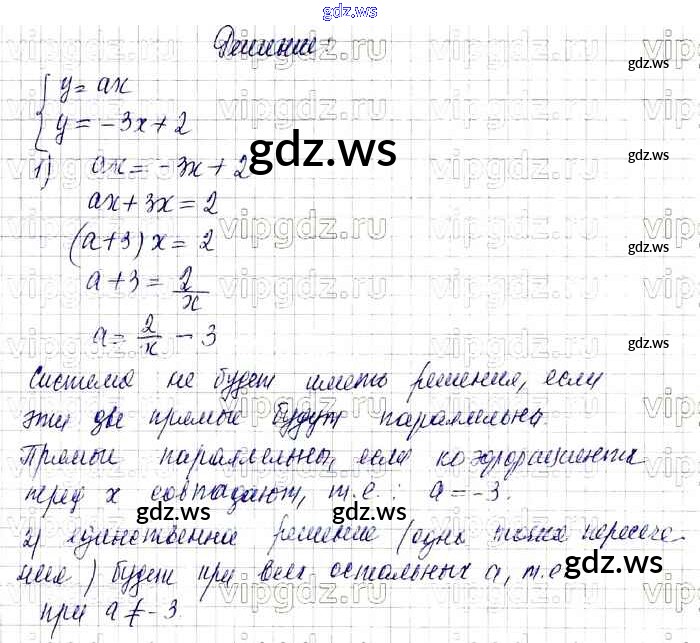 gdz.ws
Решение:
y = ax
y = -3x + 2
1) ax = -3x + 2
ax + 3x = 2
(a+3) x = 2
a + 3 = 2/x
a = 2/x - 3
Система не будет иметь решения, если
эти две прямые будут параллельны.
Прямые параллельны, если коэффициенты
перед x совпадают, т.е.: a = -3.
2) единственное решение (одна точка пересече-
ния) будет при всех остальных a, т.е.
при a ≠ -3
gdz.ws
gdz.ws
gdz.ws
gdz.ws
gdz.ws
gdz.ws
gdz.ws
gdz.ws
gdz.ws
gdz.ws
vipgdz.ru